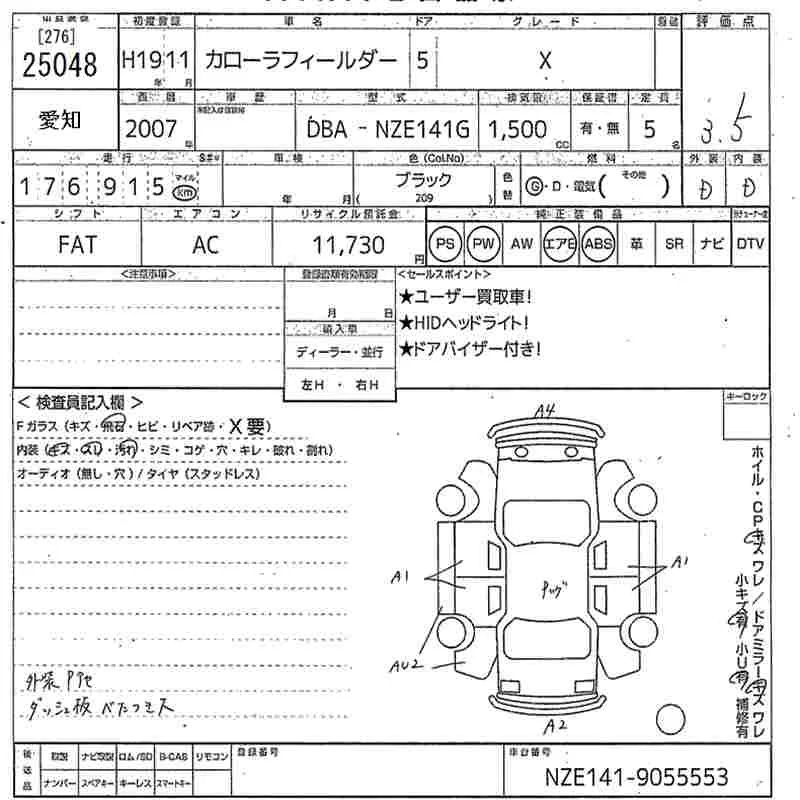 [276]
25048
愛知
初度登録
H19 11
年 月
車名
カローラフィールダー
ドア
5
グレード
X
評価点
3.5
2007
年
車歴
型式
DBA - NZE141G
排気量
1,500
CC
保証書
有・無
定員
5
名
走行
176,915
マイル
km
車検
年 月
色(Col.No)
ブラック
( 209 )
色替
燃料
G・D・電気( その他 )
外装
D
内装
D
シフト
FAT
エアコン
AC
リサイクル預託金
11,730
円
純正装備品
PS PW AW エアB ABS 革 SR ナビ DTV
<注意事項>
月 日
輸入車
ディーラー・並行
左H ・ 右H
<セールスポイント>
★ユーザー買取車!
★HIDヘッドライト!
★ドアバイザー付き!
キーロック
<検査員記入欄>
Fガラス(キズ・飛石・ヒビ・リペア跡・X要)
内装(キズ・スレ・汚れ・シミ・コゲ・穴・キレ・破れ・割れ)
オーディオ(無し・穴)/タイヤ(スタッドレス)
A4
A1
A1
AU2
A2
ホイル・CPキズ ワレ/ドアミラーキズ ワレ
小キズ有/小U有/補修有
外装
ダッシュ板 ベたつき大
後送品
取説 ナビ取説 ロム/SD B-CAS リモコン
ナンバー スペアキー キーレス スマートキー
登録番号
車台番号
NZE141-9055553